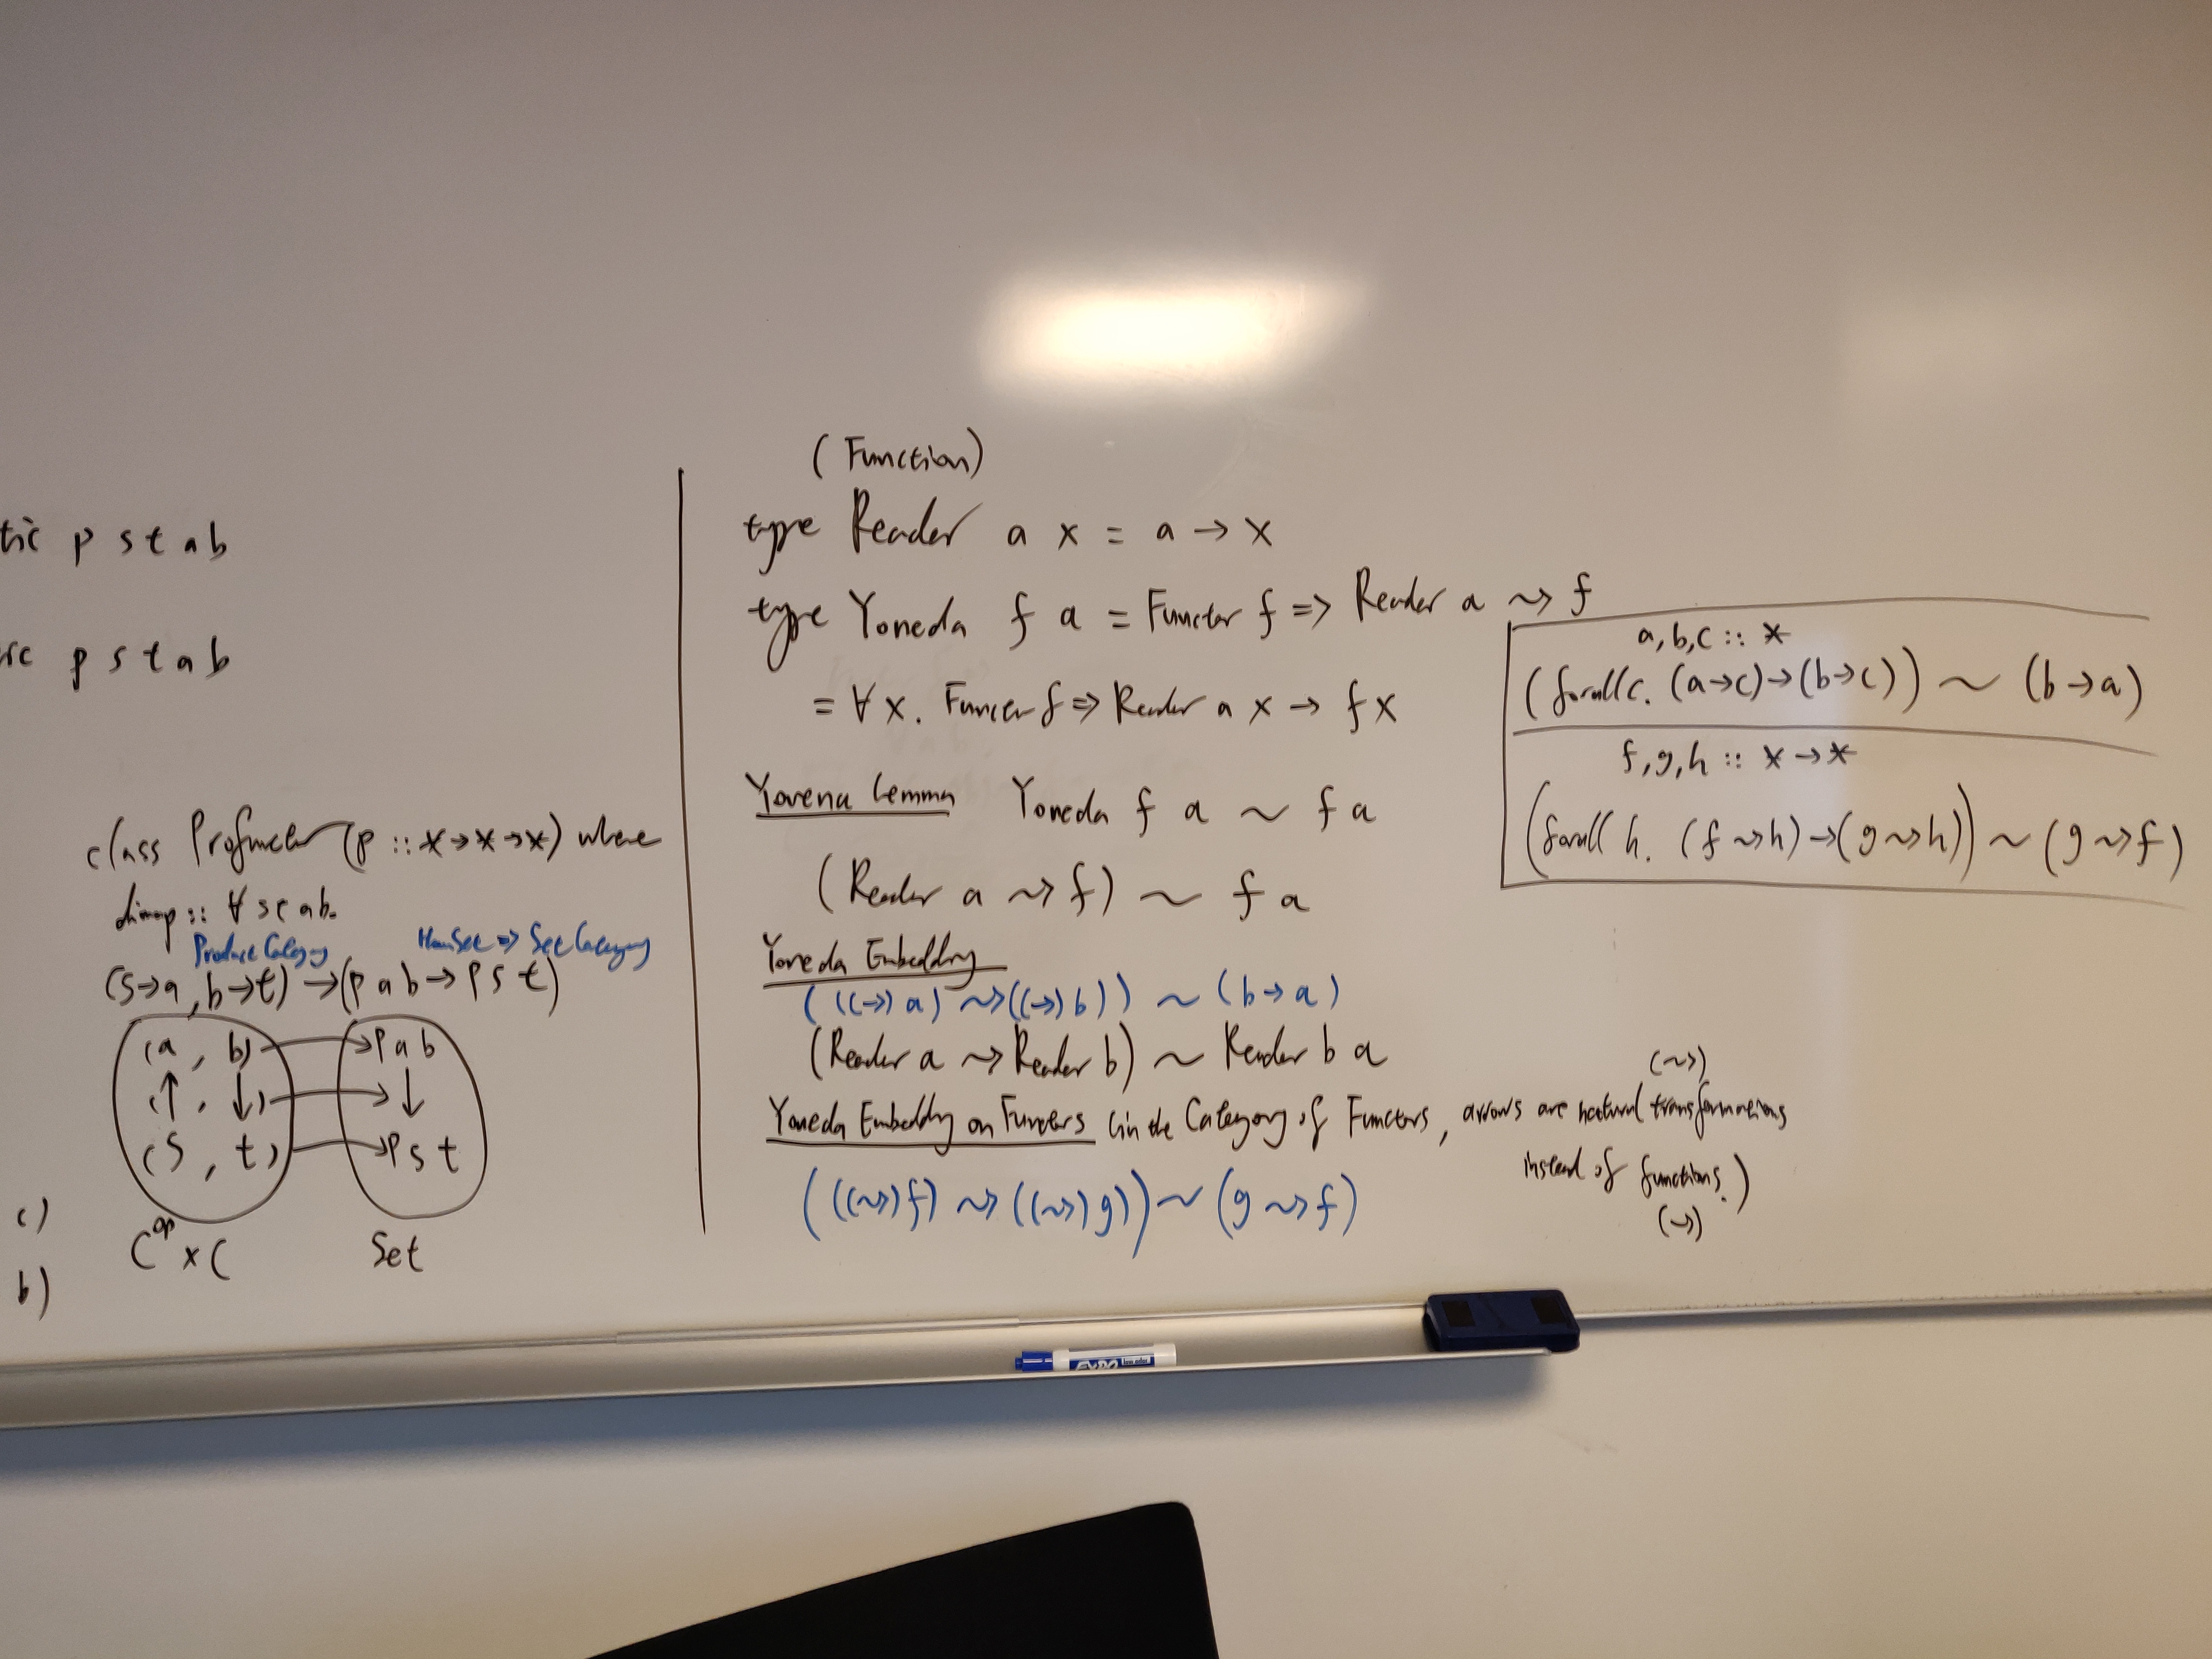 tic p s t a b
p s t a b
class Profunctor (p :: *→*→*) where
dimap :: ∀ s t a b.
Product Category HomSet => Set Category
(s→a, b→t) → (p a b → p s t)
(a , b) → p a b
(↑ , ↓) → ↓
(s , t) → p s t
C^op × C Set
c)
b)
(Function)
type Reader a x = a → x
type Yoneda f a = Functor f => Reader a ~> f
= ∀ x. Functor f => Reader a x → f x
Yovena Lemma Yoneda f a ~ f a
(Reader a ~> f) ~ f a
Yoneda Embedding
( ((→) a) ~> ((→) b) ) ~ (b → a)
(Reader a ~> Reader b) ~ Reader b a
Yoneda Embedding on Functors (in the Category of Functors, arrows are natural transformations
(~>)
instead of functions.)
(→)
( ((~>) f) ~> ((~>) g) ) ~ (g ~> f)
a,b,c :: *
(forall c. (a→c)→(b→c)) ~ (b→a)
f,g,h :: *→*
(forall h. (f ~> h)→(g ~> h)) ~ (g ~> f)
EXPO low odor